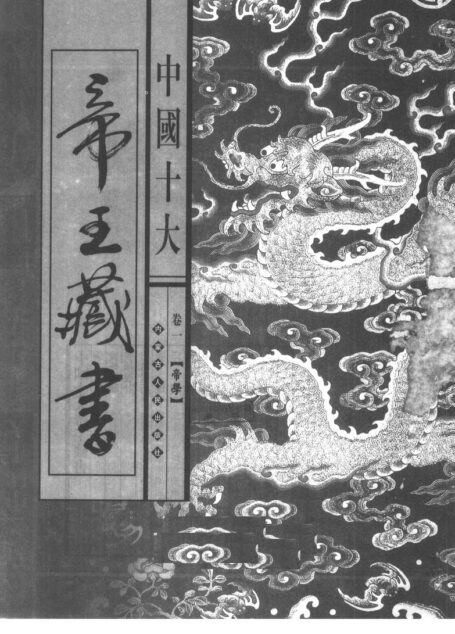 中國十大
帝王藏書
卷一【帝學】
內蒙古人民出版社